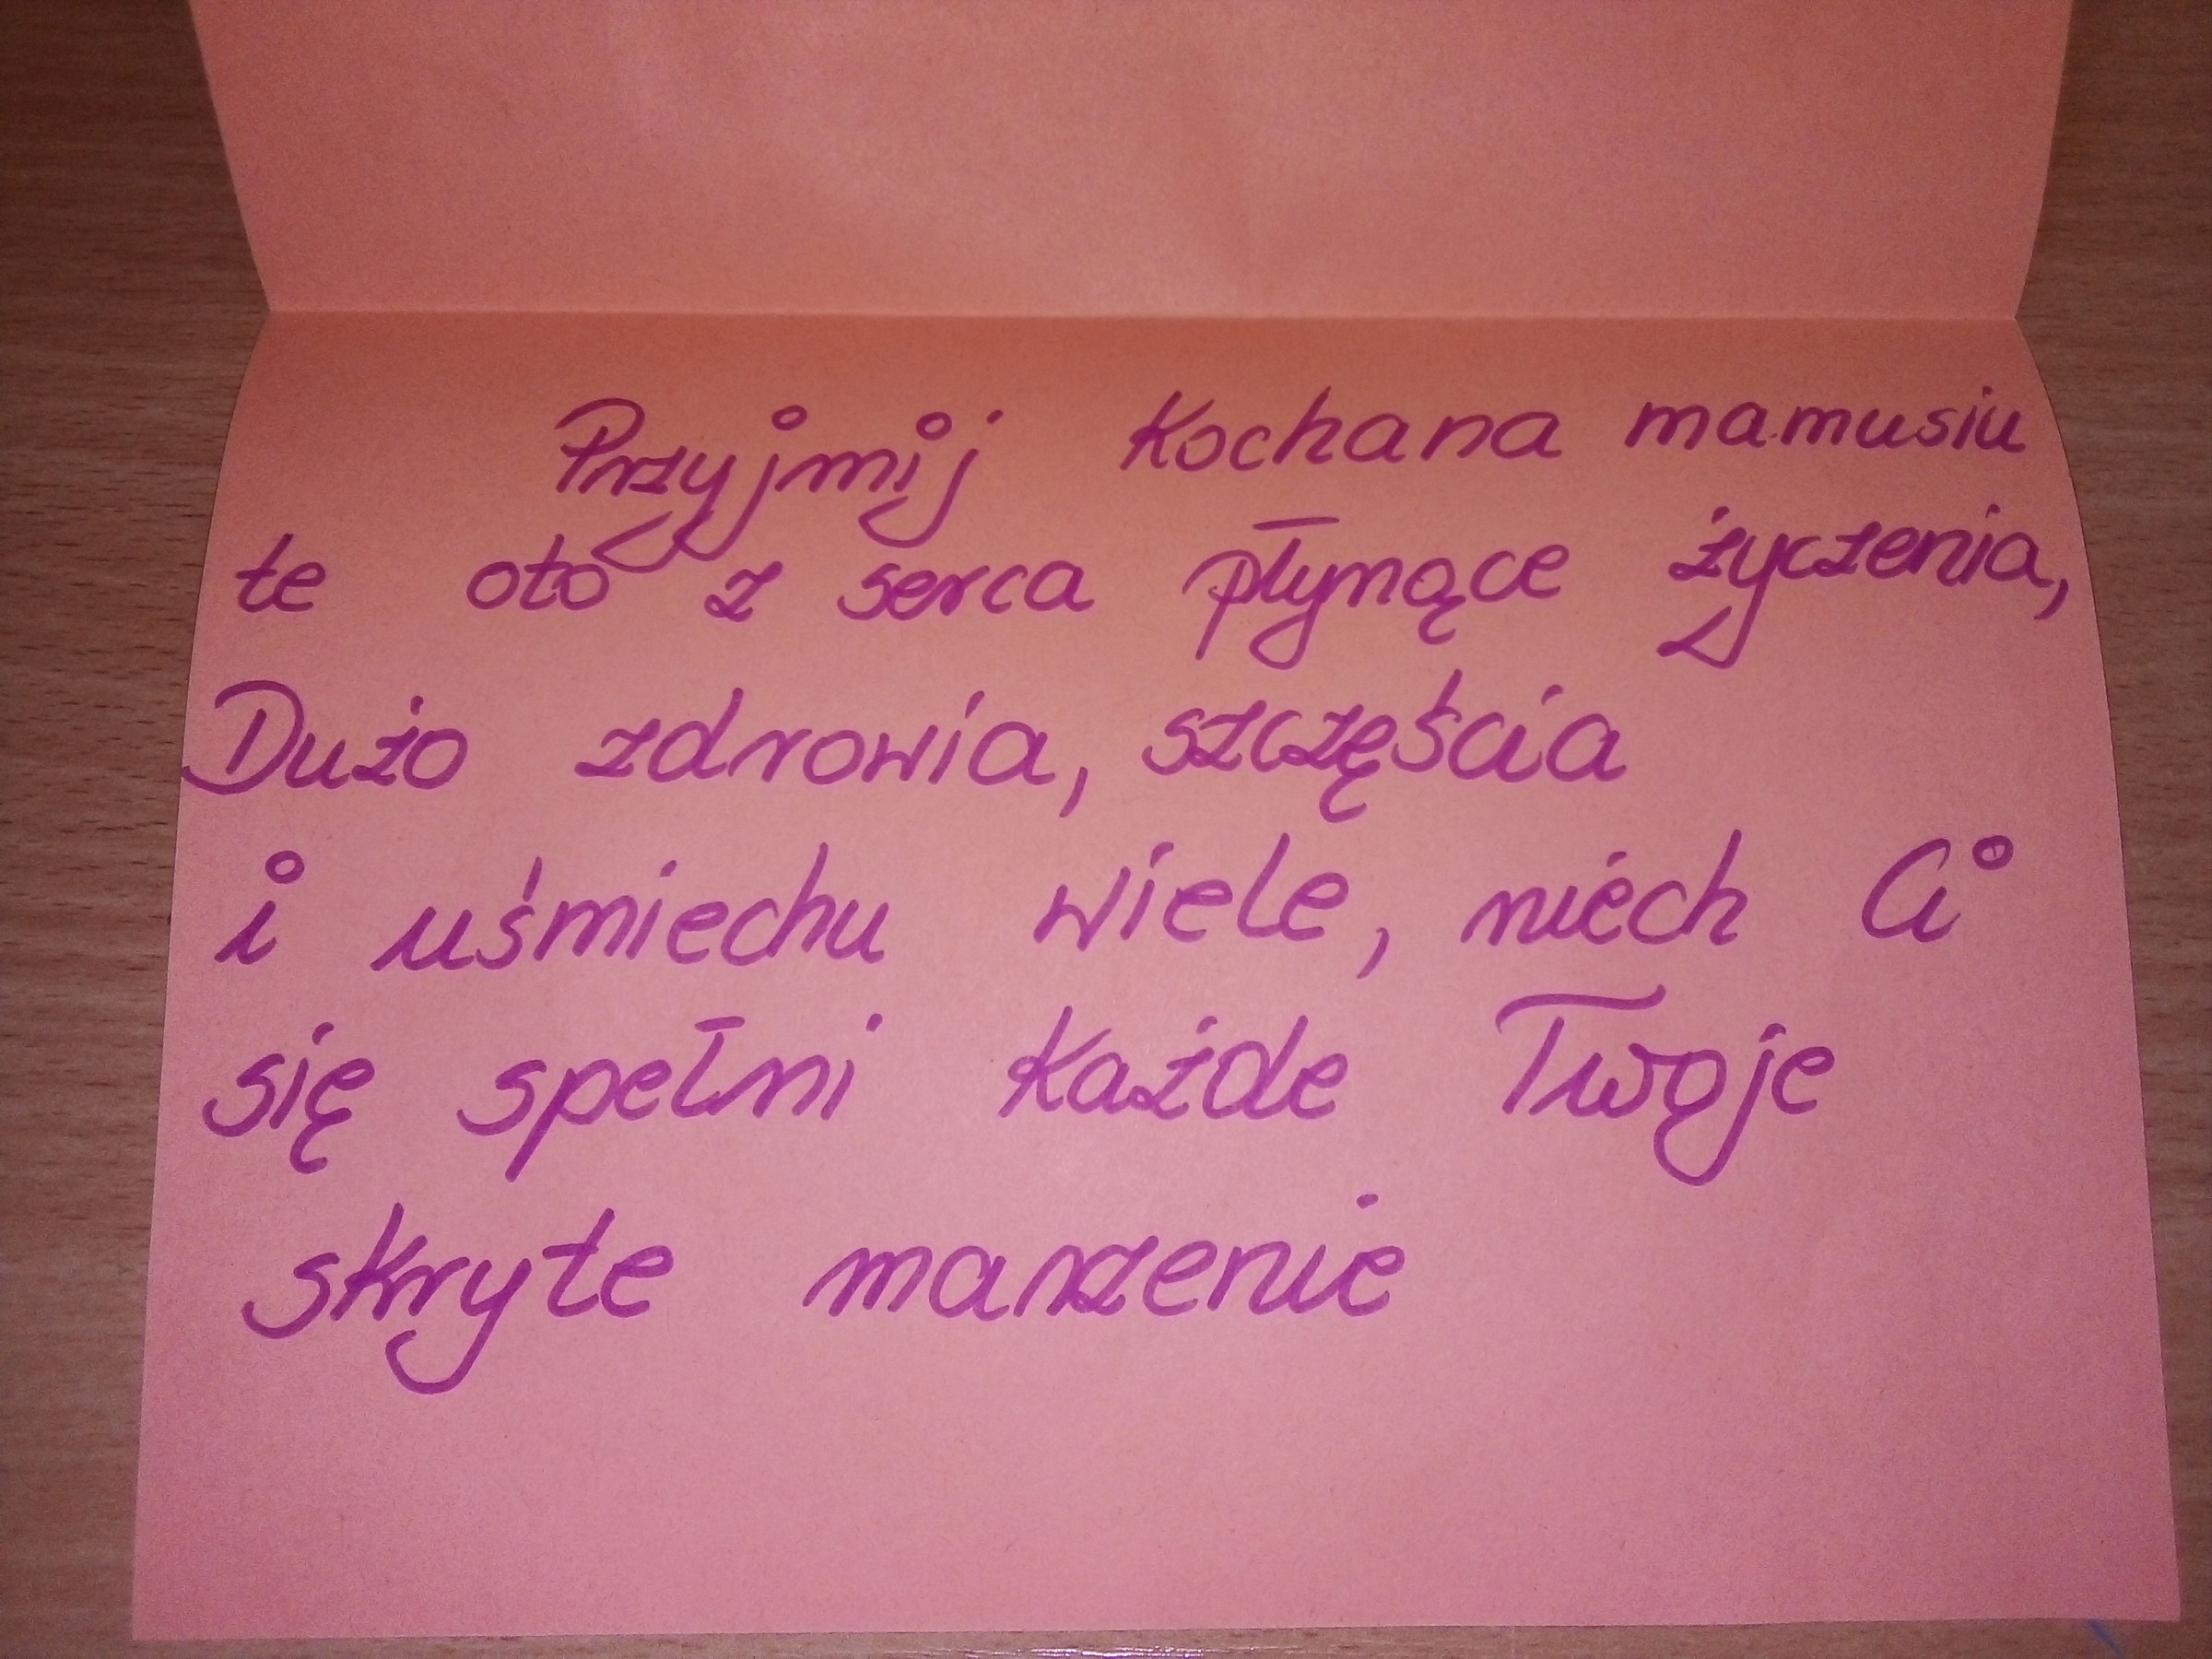 Przyjmij Kochana mamusiu
te oto z serca płynące życzenia,
Dużo zdrowia, szczęścia
i uśmiechu wiele, niech Ci
się spełni każde Twoje
skryte marzenie